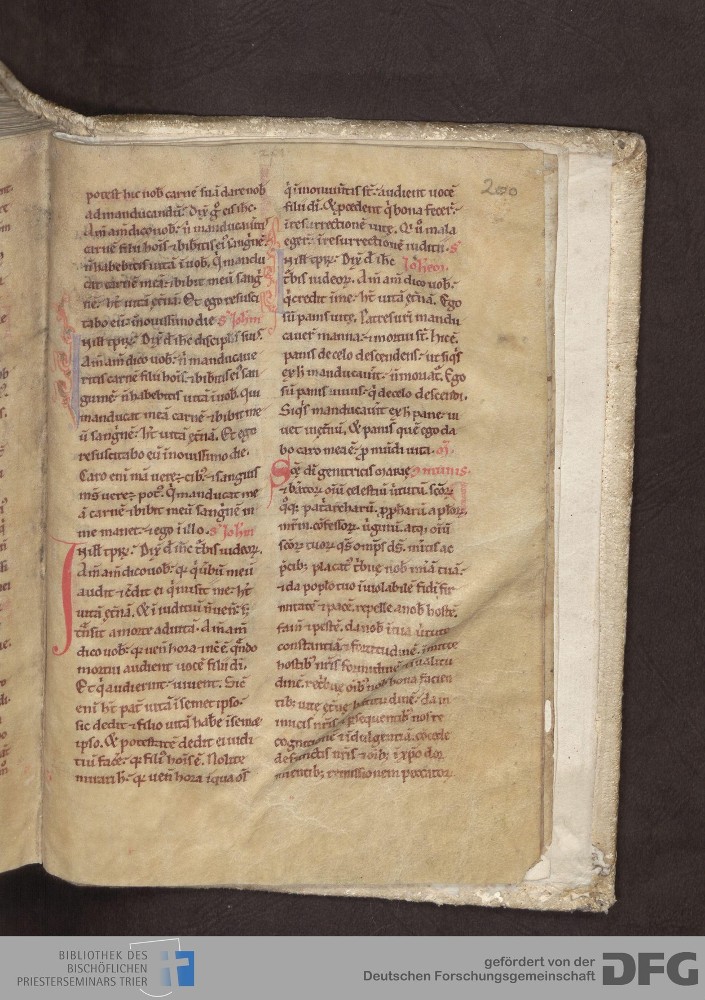 200
potest hic nob carnē suā dare nob
ad manducandū. Dix̄ g̊ eis ihc.
Am̄ am̄ dico uob. n̄ manducauiti
carnē filii hoīs ⁊ bibitis eī sanguinē
n̄ habebitis uitā ī uob. Qi mandu
cat carnē meā. ⁊ bibit meū sang
nē. ht uitā et̄nā. Et ego resusci
tabo eū ī nouissimo die. S Iohm
Nill tp̄r. Dix̄ d ihc discipls suis.
Am̄ am̄ dico uob. n̄ manducaue
ritis carnē filii hoīs. ⁊ bibitis eī san
guinē n̄ habebitis uitā ī uob. Qui
manducat meā carnē ⁊ bibit me
ū sanguinē. ht uitā et̄nā. Et ego
resuscitabo eū ī nouissimo die.
Caro enī mā uere ē cib. ⁊ sanguis
ms̄ uere ē pot. Qi manducat me
ā carnē ⁊ bibit meū sanguinē in
me manet. ⁊ ego ī illo. S Iohm
Nill tp̄r. Dix̄ d ihc t̄bis iudeor.
Am̄ am̄ dico uob. qr q̄ ūbū meū
audit ⁊ c̄dit ei q̄ misit me. ht
uitā et̄nā. & ī iudiciū n̄ uenit. s;
t̄nsit a morte ad uitā. Am̄ am̄
dico uob. qr uenit hora ⁊ nc̄ ē qn̄do
mortui audient uocē filii dī.
Et q̄ audierint. uiuent. Sic̄
enī ht pat̄ uitā ī semet ipso.
sic dedit ⁊ filio uitā habe ī seme
ipso. & potestatē dedit ei iudi
tiū face. qr fili hoīs ē. Nolite
mirari h. qr uenit hora ī qua oēs
q̄ ī monumtis st. audient uocē
filii dī. & p̄cedent q̄ bona fecer.
ī resurrectionē uite. Qi ū mala
eger. ī resurrectionē iudicii. S
Nill tp̄r. Dix̄ d ihc Iohem.
t̄bis iudeor. Am̄ am̄ dico uob.
q̄ credit ī me. ht uitā et̄nā. Ego
sū panis uite. Patres uri mandu
cauer manna. ⁊ mortui st. hic ē
panis de celo descendens. ut siqs
ex h manducauit. n̄ moriat. Ego
sū panis uiuus. q̄ de celo descendi.
Siqs manducauit ex h pane. ui
uet ī et̄nū. & panis quē ego da
bo caro mea ē p mūdi uita. Oī.
Scē dī genitricis marie cōmunis
⁊ bator oīū celestiū uirtutū. scōr
q̄q. patarcharū. pphetarū aplor.
mrm. cōfessor. uginū. atq. oīū
scōr tuor. qs̄ omps ds̄. mitis ac
p̄cib. placat tbue nob miam tuā.
⁊ da poplo tuo inuiolabilē fidī fir
mitatē ⁊ pacē. repelle a nob hostē.
famē ⁊ pestē. da nob ī tua uirtute
constantiā ⁊ fortitudinē. īmitte
hostib nris formidinē ⁊ īualitu
dinē. retbue oīb nob bona facien
tib. uite et̄ne beatitudinē. da in
imicis nris ⁊ p̄sequentib nos re
cognitionē ⁊ indulgentiā. cōcede
defunctis nris ⁊ oīb. ī xp̄o dor
mientib. remissionem peccator.
BIBLIOTHEK DES
BISCHÖFLICHEN
PRIESTERSEMINARS TRIER
gefördert von der
Deutschen Forschungsgemeinschaft
DFG